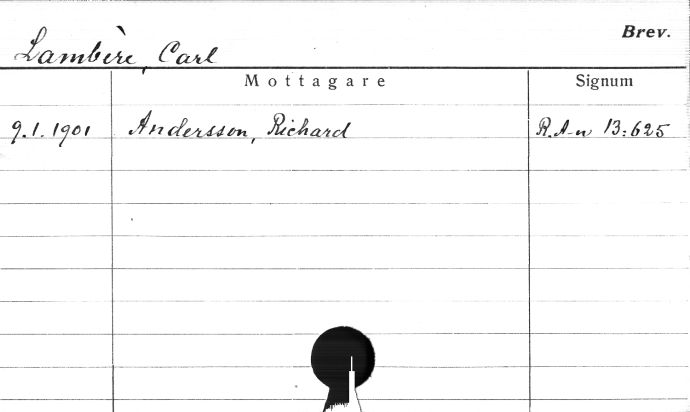 Brev.
Lambère, Carl
Mottagare Signum
9.1.1901 Andersson, Richard R.A-n 13:625